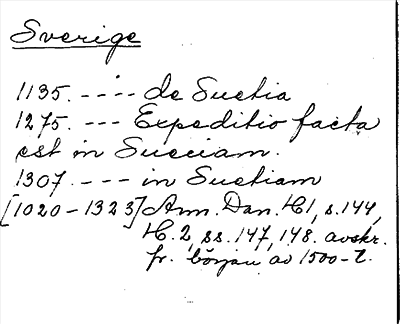 Sverige
1135. - - - - de Suetia
1275. - - - Expeditio facta
est in Sueciam.
1307. - - - in Suetiam
[1020-1323] Ann. Dan. H1, s. 144,
H. 2, ss. 147, 148. avskr.
fr. början av 1500-t.